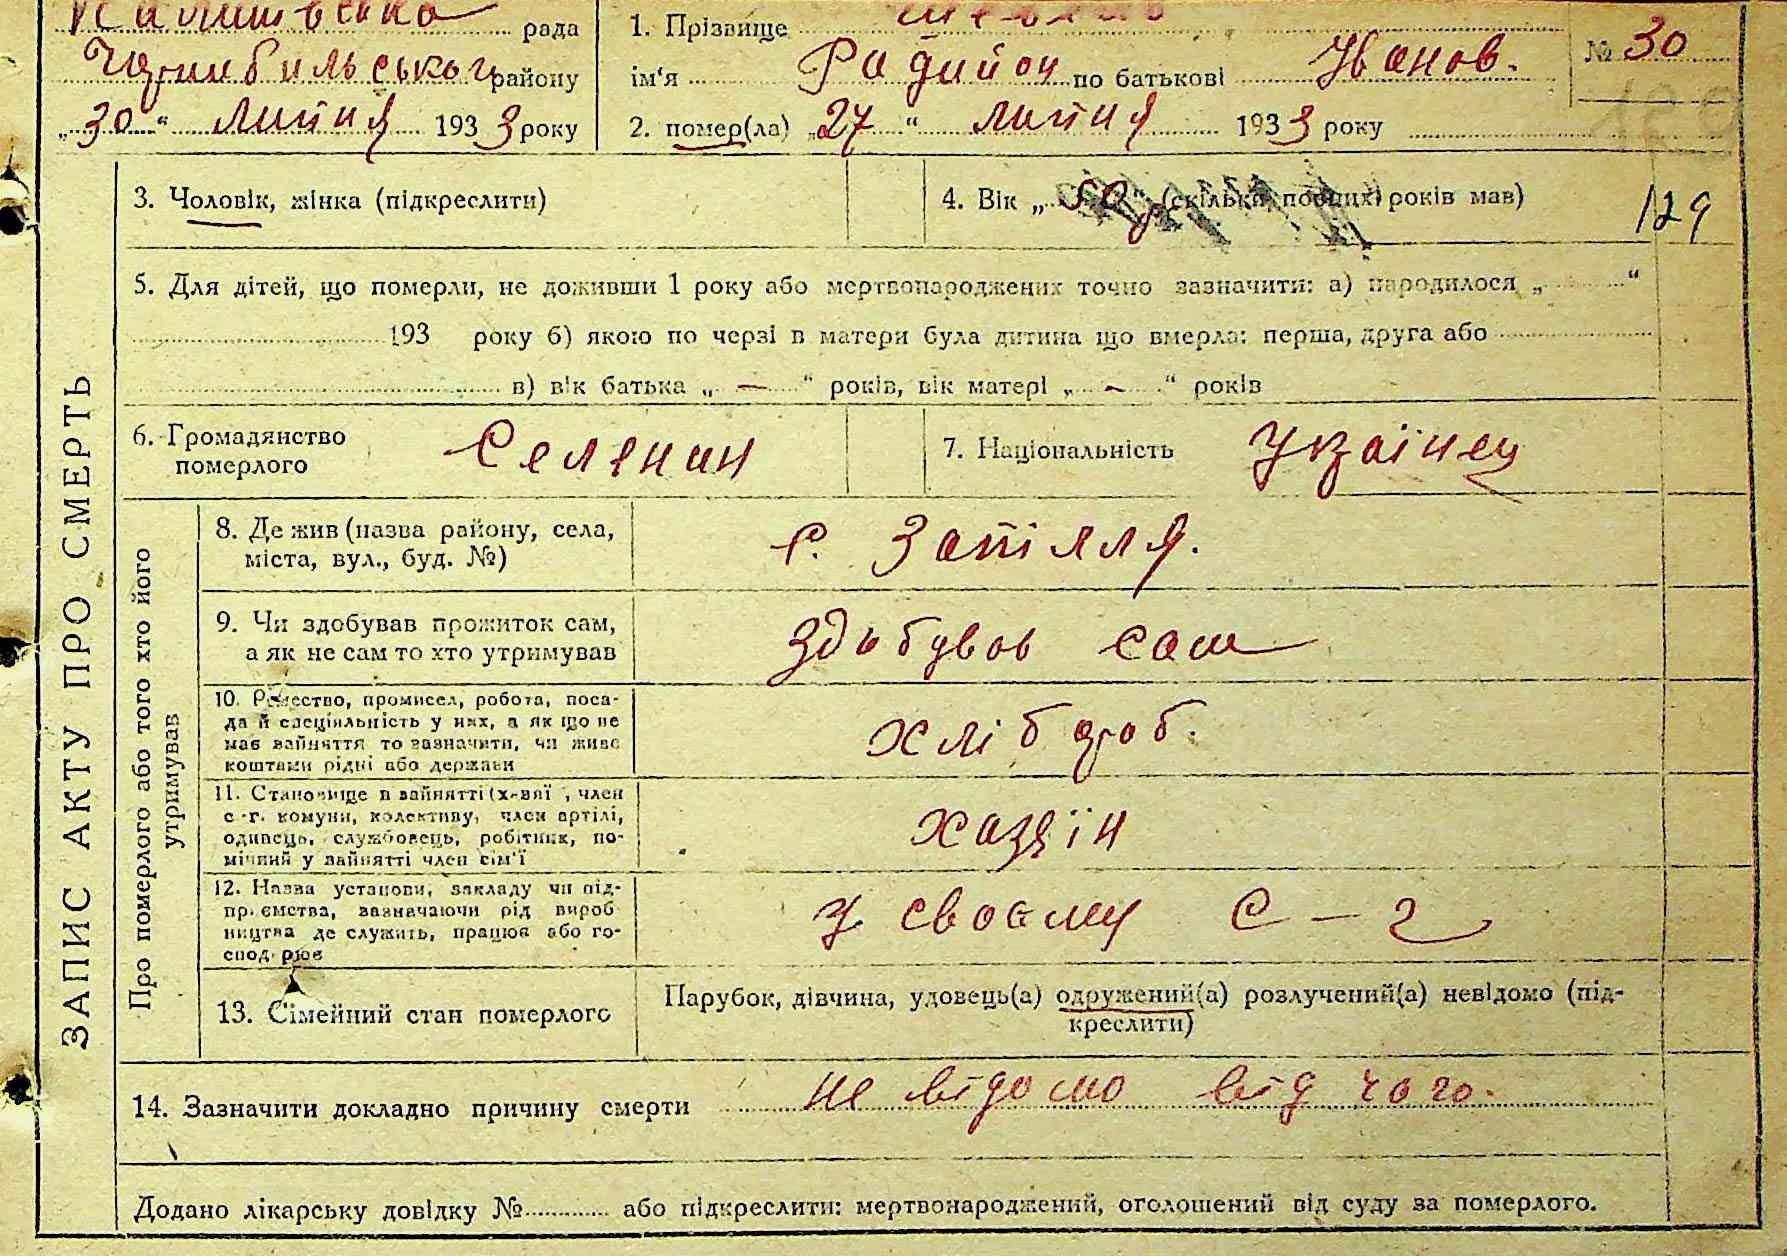 рада 1. Прізвище
Чорнобильського району ім'я Радийон по батькові Іванов. № 30
„30“ липня 1933 року 2. помер(ла) „27“ липня 1933 року
3. Чоловік, жінка (підкреслити) 4. Вік „ “ (скільки повних років мав) 129
5. Для дітей, що померли, не доживши 1 року або мертвонароджених точно зазначити: а) народилося „ “
193 року б) якою по черзі в матери була дитина що вмерла: перша, друга або
в) вік батька „ — “ років, вік матері „ - “ років
6. Громадянство померлого Селянин 7. Національність Українец
8. Де жив (назва району, села,
міста, вул., буд. №) с. Запілля.
9. Чи здобував прожиток сам,
а як не сам то хто утримував здобував сам
10. Ремество, промисел, робота, поса-
да й спеціяльність у них, а як що не
має зайняття то зазначити, чи живе
коштами рідні або держави хлібороб.
11. Становище в зайнятті (х-вяї , член
с-г. комуни, колективу, член артілі,
одинець, службовець, робітник, по-
мічний у зайнятті член сім'ї хазяїн
12. Назва установи, закладу чи під-
приємства, зазначаючи рід вироб
ництва де служить, працює або го-
сподарює У своєму с - г
13. Сімейний стан померлого Парубок, дівчина, удовець(а) одружений(а) розлучений(а) невідомо (під-
креслити)
14. Зазначити докладно причину смерти не відомо від чого.
Додано лікарську довідку № або підкреслити: мертвонароджений, оголошений від суду за померлого.
ЗАПИС АКТУ ПРО СМЕРТЬ
Про померлого або того хто його
утримував